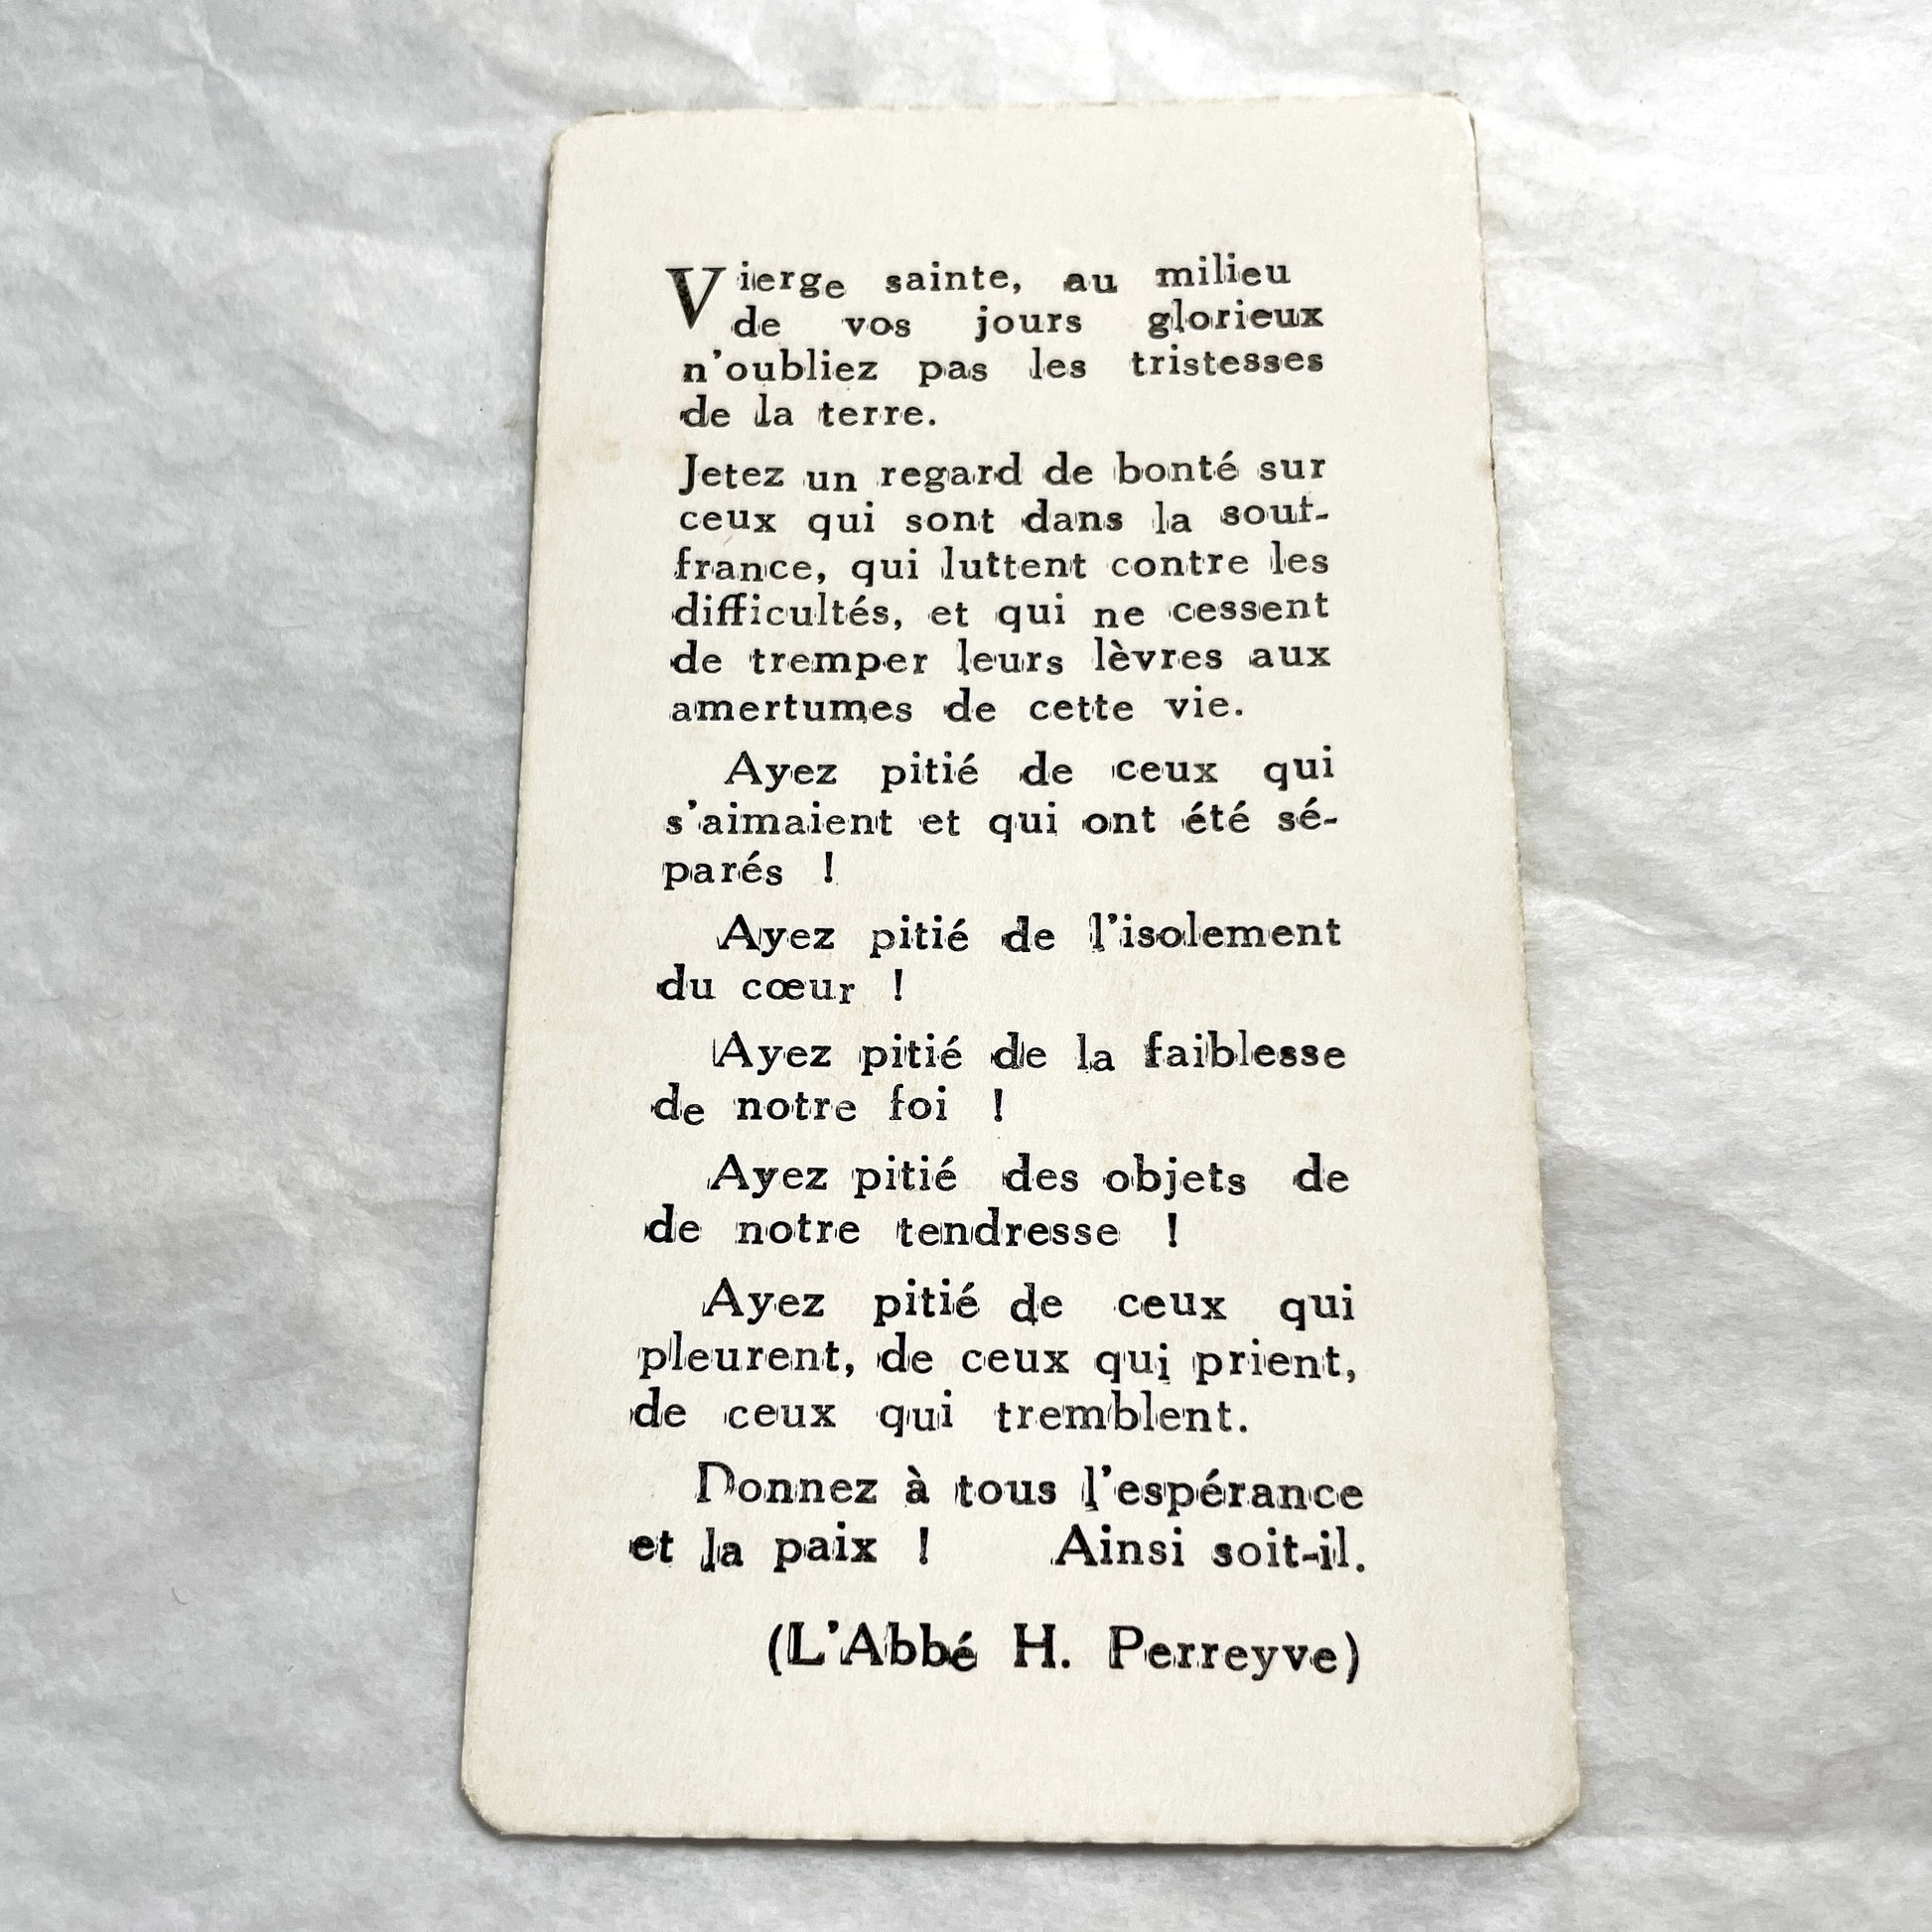 Vierge sainte, au milieu
de vos jours glorieux
n'oubliez pas les tristesses
de la terre.
Jetez un regard de bonté sur
ceux qui sont dans la souf-
france, qui luttent contre les
difficultés, et qui ne cessent
de tremper leurs lèvres aux
amertumes de cette vie.
Ayez pitié de ceux qui
s'aimaient et qui ont été sé-
parés !
Ayez pitié de l'isolement
du cœur !
Ayez pitié de la faiblesse
de notre foi !
Ayez pitié des objets de
de notre tendresse !
Ayez pitié de ceux qui
pleurent, de ceux qui prient,
de ceux qui tremblent.
Donnez à tous l'espérance
et la paix ! Ainsi soit-il.
(L'Abbé H. Perreyve)